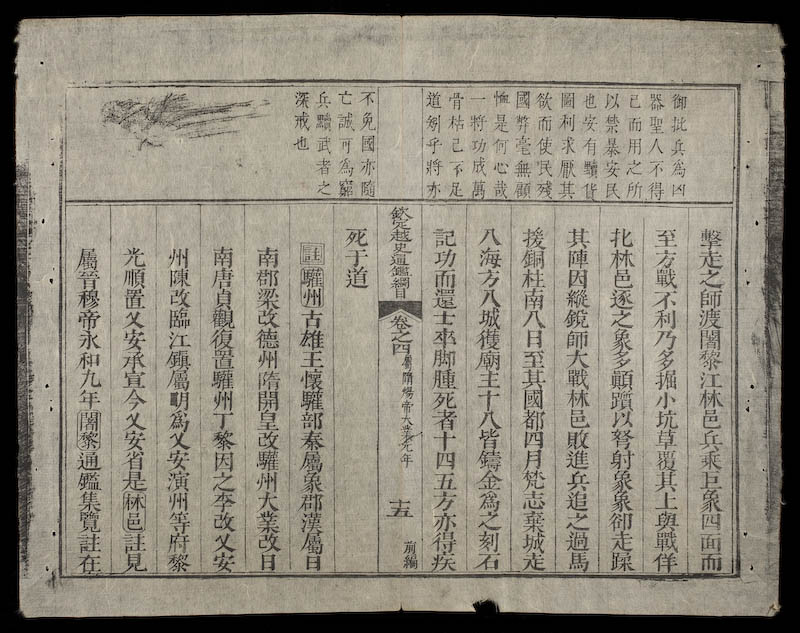 御批兵為凶
器聖人不得
已而用之所
以禁暴安民
也安有黷貨
圖利求厭其
欲而使民殘
國弊毫無顧
恤是何心哉
一將功成萬
骨枯已不足
道矧乎將亦
擊走之師渡闍黎江林邑兵乘巨象四面而
至方戰不利乃多掘小坑草覆其上與戰佯
北林邑逐之象多顛躓以弩射象象卻走蹂
其陣因縱銳師大戰林邑敗進兵追之過馬
援銅柱南八日至其國都四月梵志棄城走
入海方入城獲廟主十八皆鑄金為之刻石
記功而還士卒脚腫死者十四五方亦得疾
欽定越史通鑑綱目 卷之四 屬隋煬帝大業元年 十五 前編
不免國亦隨
亡誠可為窮
兵黷武者之
深戒也
死于道
註驩州古雄王懷驩部秦屬象郡漢屬日
南郡梁改德州隋開皇改驩州大業改日
南唐貞觀復置驩州丁黎因之李改乂安
州陳改臨江鎮屬明為乂安演州等府黎
光順置乂安承宣今乂安省是林邑註見
屬晉穆帝永和九年闍黎通鑑集覽註在